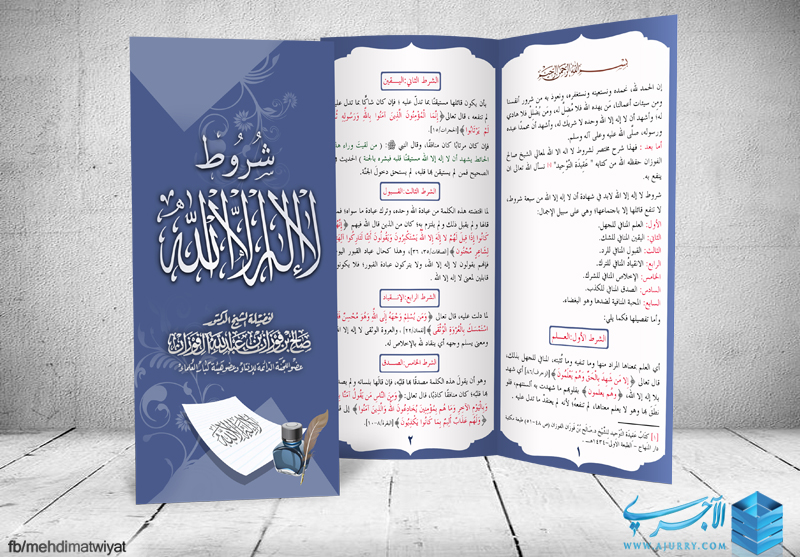 شُرُوط
لا إله إلا الله
لفضيلة الشيخ الدكتور
صالح بن فوزان بن عبد الله الفوزان
عضو اللجنة الدائمة للإفتاء وعضو هيئة كبار العلماء
لا إله إلا الله
بسم الله الرحمن الرحيم
إن الحمد لله، نحمده ونستعينه ونستغفره، ونعوذ به من شرور أنفسنا
ومن سيئات أعمالنا، مَن يهده الله فلا مُضلَّ له، ومَن يُضلل فلا هادي
له؛ وأشهد أن لا إله إلا الله وحده لا شريك له، وأشهد أن محمدًا عبده
ورسوله، صلَّى الله عليه وعلى آله وسلم.
أما بعد : فهذا شرح مختصر لشروط لا اله الا الله لمعالي الشيخ صالح
الفوزان حفظه الله من كتابه " عَقِيدَة التَّوْحِيد" [١] نسأل الله تعالى ان
ينفع به.
شروط لا إله إلا الله لابد في شهادة أن لا إله إلا الله من سبعة شروط،
لا تنفع قائلها إلا باجتماعها؛ وهي على سبيل الإجمال:
الأول: العلم المنافي للجهل.
الثاني: اليقين المنافي للشك.
الثالث: القبول المنافي للرد.
الرابع: الانقيادُ المنافي للترك.
الخامس: الإخلاص المنافي للشرك.
السادس: الصدق المنافي للكذب.
السابع: المحبة المنافية لضدها وهو البغضاء.
وأما تفصيلها فكما يلي:
الشرط الأول: العـلـم
أي العلم بمعناها المراد منها وما تنفيه وما تُثبته، المنافي للجهل بذلك،
قال تعالى ﴿ إِلَّا مَن شَهِدَ بِالْحَقِّ وَهُمْ يَعْلَمُونَ ﴾ [الزخرف/٨٦] أي شهد
بلا إله إلا الله، ﴿ وهم يعلمون ﴾ بقلوبهم ما شهدت به ألسنتهم، فلو
نطقَ بها وهو لا يعلم معناها، لم تنفعه؛ لأنه لم يعتقدْ ما تدل عليه .
[١] كتابُ عقيدَة التَّوْحِيد للشَّيْخ د.صَالح بْنُ فَوْزَان الفوزان (ص ٤٨-٥١) طبعة مكتبة
دار المنهاج - الطبعة الأولى-١٤٣٤هـ .
١
الشرط الثاني: اليـقـين
بأن يكون قائلها مستيقنًا بما تدلّ عليه ؛ فإن كان شاكًّا بما تدل
لم تنفعه ، قال تعالى ﴿ إِنَّمَا الْمُؤْمِنُونَ الَّذِينَ آمَنُوا بِاللَّهِ وَرَسُولِهِ ثُمَّ
لَمْ يَرْتَابُوا ﴾ [الحجرات/١٥].
فإن كان مرتابًا كان منافقًا، وقال النبي ﷺ: ( من لقيتَ وراء هذا
الحائط يشهد أن لا إله إلا الله مستيقنًا قلبه فبشره بالجنة ) الحديث في
الصحيح فمن لم يستيقن بها قلبه، لم يستحق دخولَ الجنَّة.
الشرط الثالث: القـبـول
لما اقتضته هذه الكلمة من عبادة الله وحده، وترك عبادة ما سواه؛ فمن
قالها و لم يقبل ذلك و لم يلتزم به؛ كان من الذين قال الله فيهم ﴿ إِنَّهُمْ
كَانُوا إِذَا قِيلَ لَهُمْ لَا إِلَهَ إِلَّا اللَّهُ يَسْتَكْبِرُونَ وَيَقُولُونَ أَئِنَّا لَتَارِكُوا آلِهَتِنَا
لِشَاعِرٍ مَّجْنُونٍ ﴾ [الصافات/٣٥، ٣٦]، وهذا كحال عباد القبور اليوم
فإنهم يقولون لا إله إلا الله، ولا يتركون عبادة القبور؛ فلا يكونون
قابلين لمعنى لا إله إلا الله .
الشرط الرابع: الإنـقـيـاد
لما دلت عليه، قال تعالى ﴿ وَمَن يُسْلِمْ وَجْهَهُ إِلَى اللَّهِ وَهُوَ مُحْسِنٌ فَقَدِ
اسْتَمْسَكَ بِالْعُرْوَةِ الْوُثْقَى ﴾ [لقمان/٢٢] ، والعروة الوثقى لا إله إلا الله
ومعنى يسلم وجهه أي ينقاد لله بالإخلاص له.
الشرط الخامس: الصدق
وهو أن يقول هذه الكلمة مصدقًا بها قلبُه، فإن قالها بلسانه و لم يصدق
بها قلبُه؛ كان منافقًا كاذبًا، قال تعالى: ﴿ وَمِنَ النَّاسِ مَن يَقُولُ آمَنَّا بِاللَّهِ
وَبِالْيَوْمِ الْآخِرِ وَمَا هُم بِمُؤْمِنِينَ يُخَادِعُونَ اللَّهَ وَالَّذِينَ آمَنُوا ﴾ إلى قوله
﴿ وَلَهُمْ عَذَابٌ أَلِيمٌ بِمَا كَانُوا يَكْذِبُونَ ﴾ [البقرة/٨-١٠]
٢
fb/mehdimatwiyat
الآجري
WWW.AJURRY.COM